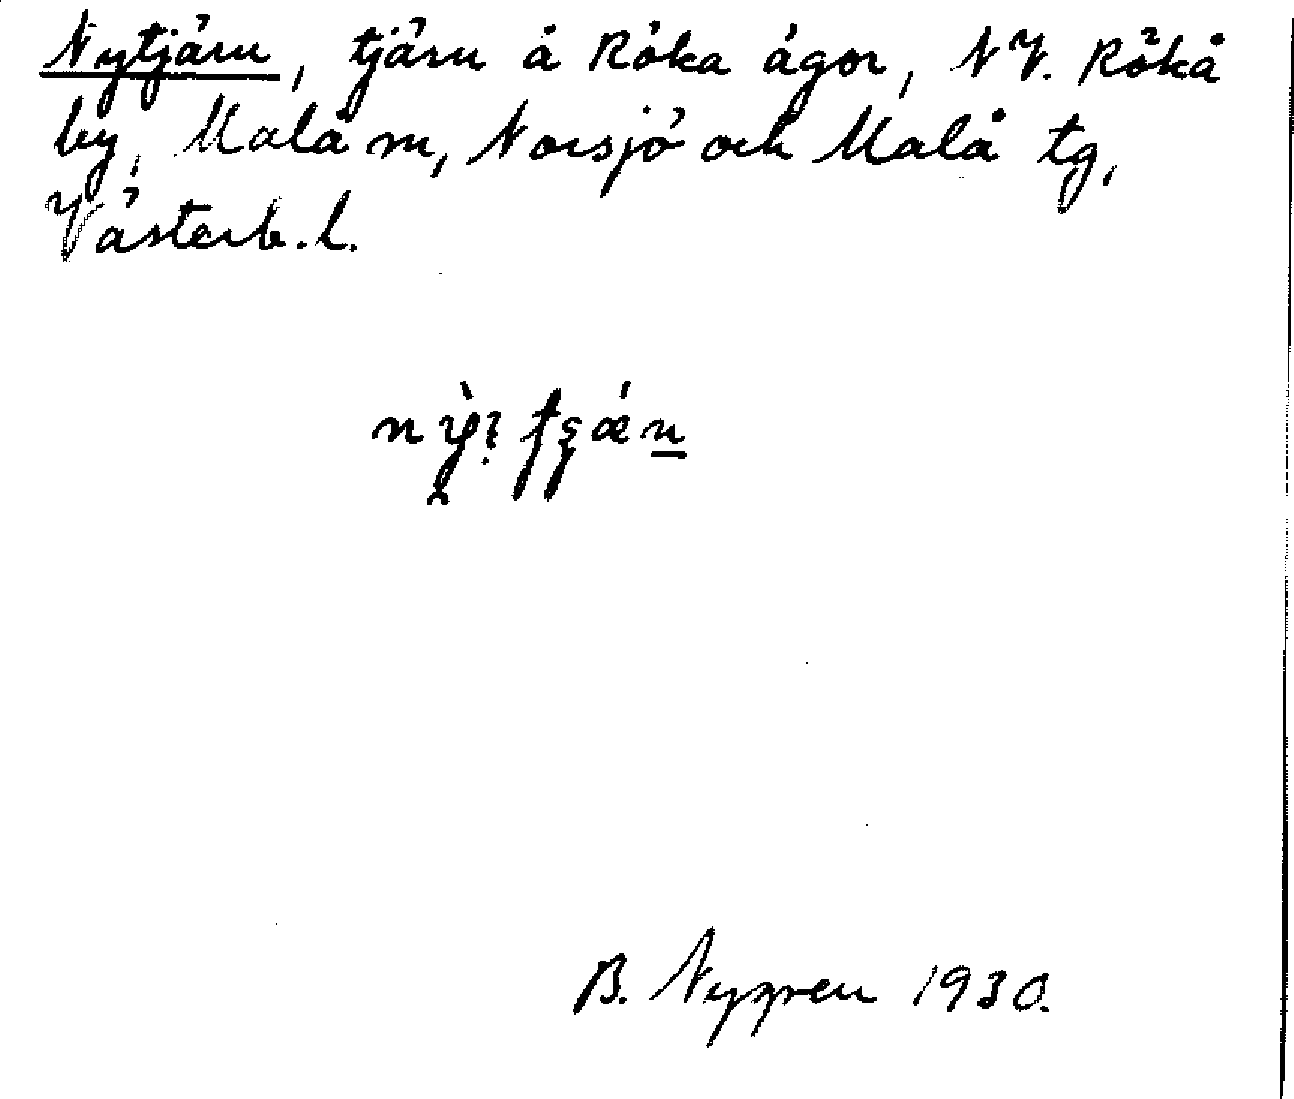 Nytjärn, tjärn å Röka ägor, NV. Rökå
by, Malå sn, Norsjö och Malå tg,
Västerb. l.
B. Nygren 1930.